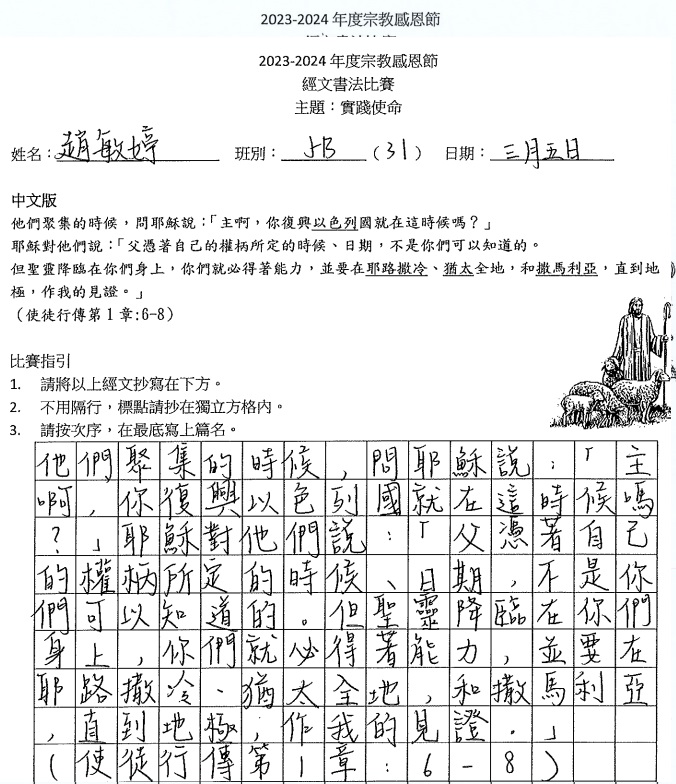 2023-2024 年度宗教感恩節
2023-2024 年度宗教感恩節
經文書法比賽
主題：實踐使命
姓名：趙敏婷 班別：5B （31） 日期：三月五日
中文版
他們聚集的時候，問耶穌說：「主啊，你復興以色列國就在這時候嗎？」
耶穌對他們說：「父憑著自己的權柄所定的時候、日期，不是你們可以知道的。
但聖靈降臨在你們身上，你們就必得著能力，並要在耶路撒冷、猶太全地，和撒馬利亞，直到地
極，作我的見證。」
（使徒行傳第 1 章:6-8）
比賽指引
1. 請將以上經文抄寫在下方。
2. 不用隔行，標點請抄在獨立方格內。
3. 請按次序，在最底寫上篇名。
他們聚集的時候，問耶穌說：「主
啊，你復興以色列國就在這時候嗎
？」耶穌對他們說：「父憑著自己
的權柄所定的時候、日期，不是你
們可以知道的。但聖靈降臨在你們
身上，你們就必得著能力，並要在
耶路撒冷、猶太全地，和撒馬利亞
，直到地極，作我的見證。」
（使徒行傳第1章：6-8）